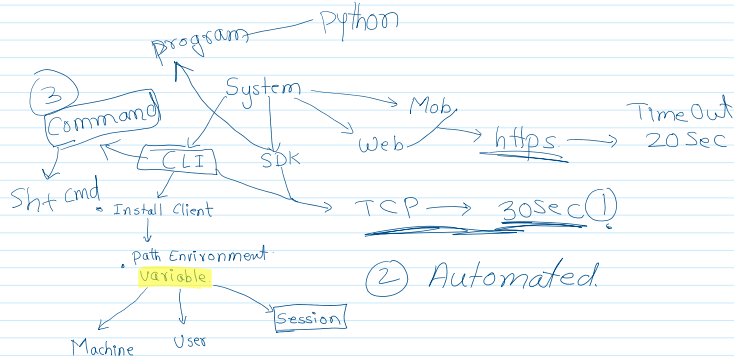 program
python
System
3
Command
Mob
Web
https
Time Out
20 Sec
CLI
SDK
Sht Cmd
Install Client
TCP
30Sec
1
Path Environment
variable
2
Automated.
Machine
User
Session